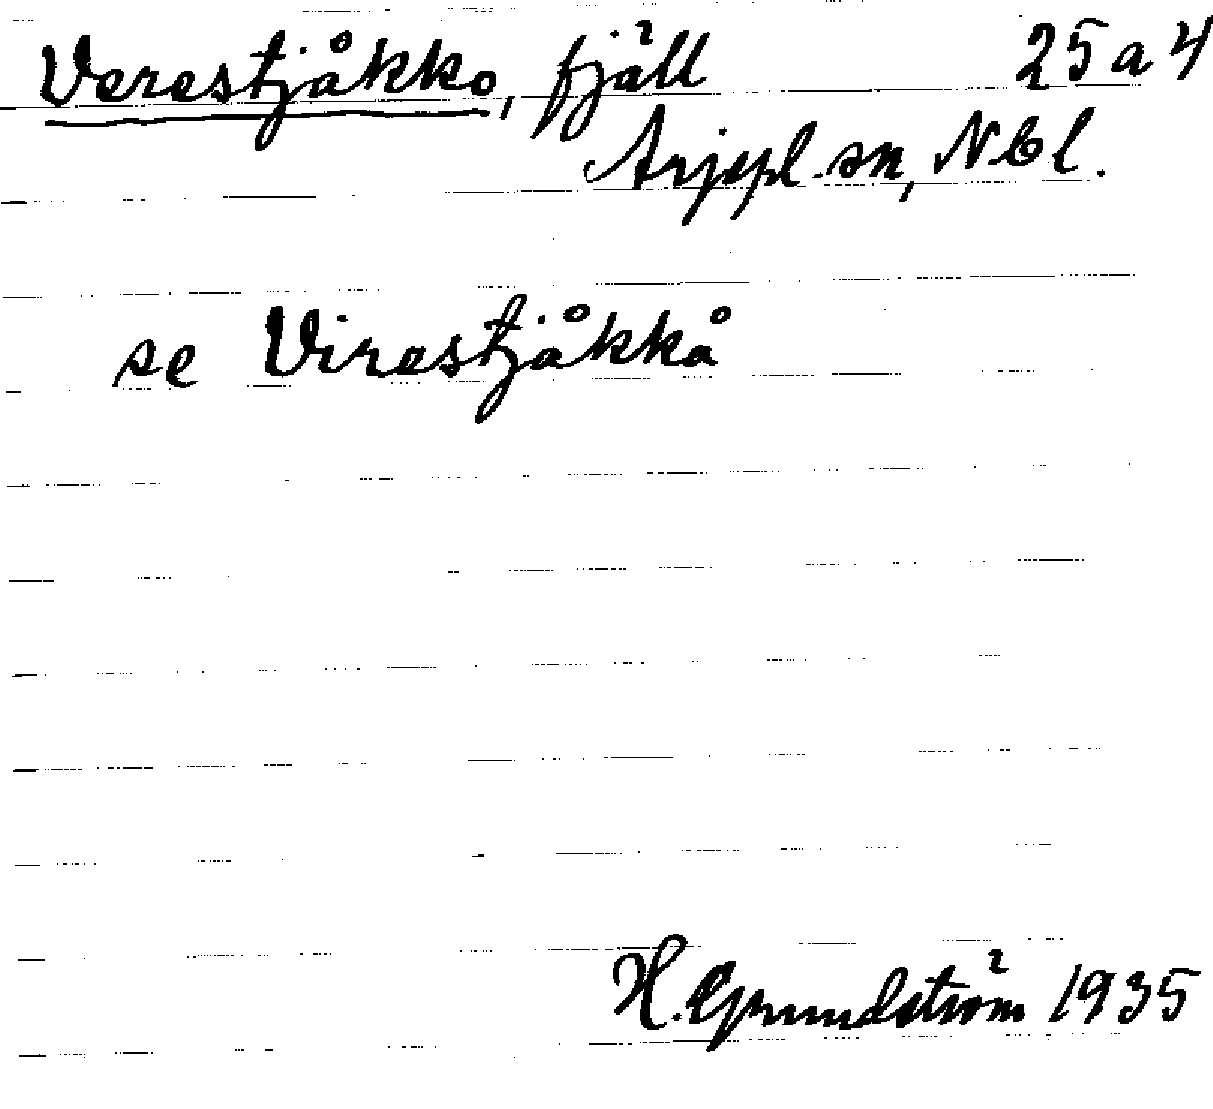 Verestjåkko, fjäll 25 a 4
Arjepl. sn, Nbl.
se Virestjåkkå
H. Grundström 1935